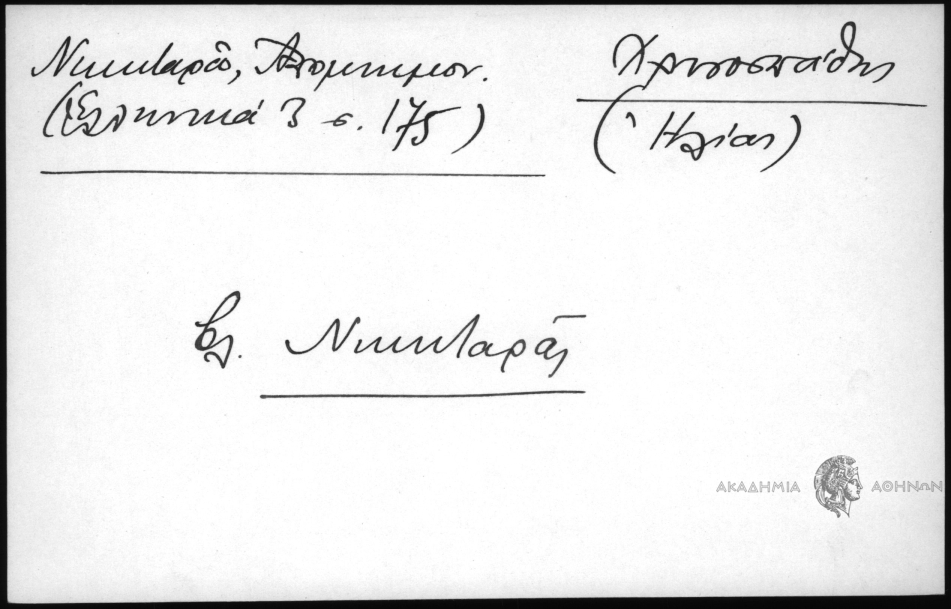 Νικηταρᾶ, Ἀπομνημον.
(Ἑλληνικά 3 σ. 175)
Χρυσοσπάθης
(Ἠλίας)
βλ. Νικηταρᾶς
ΑΚΑΔΗΜΙΑ ΑΘΗΝΩΝ